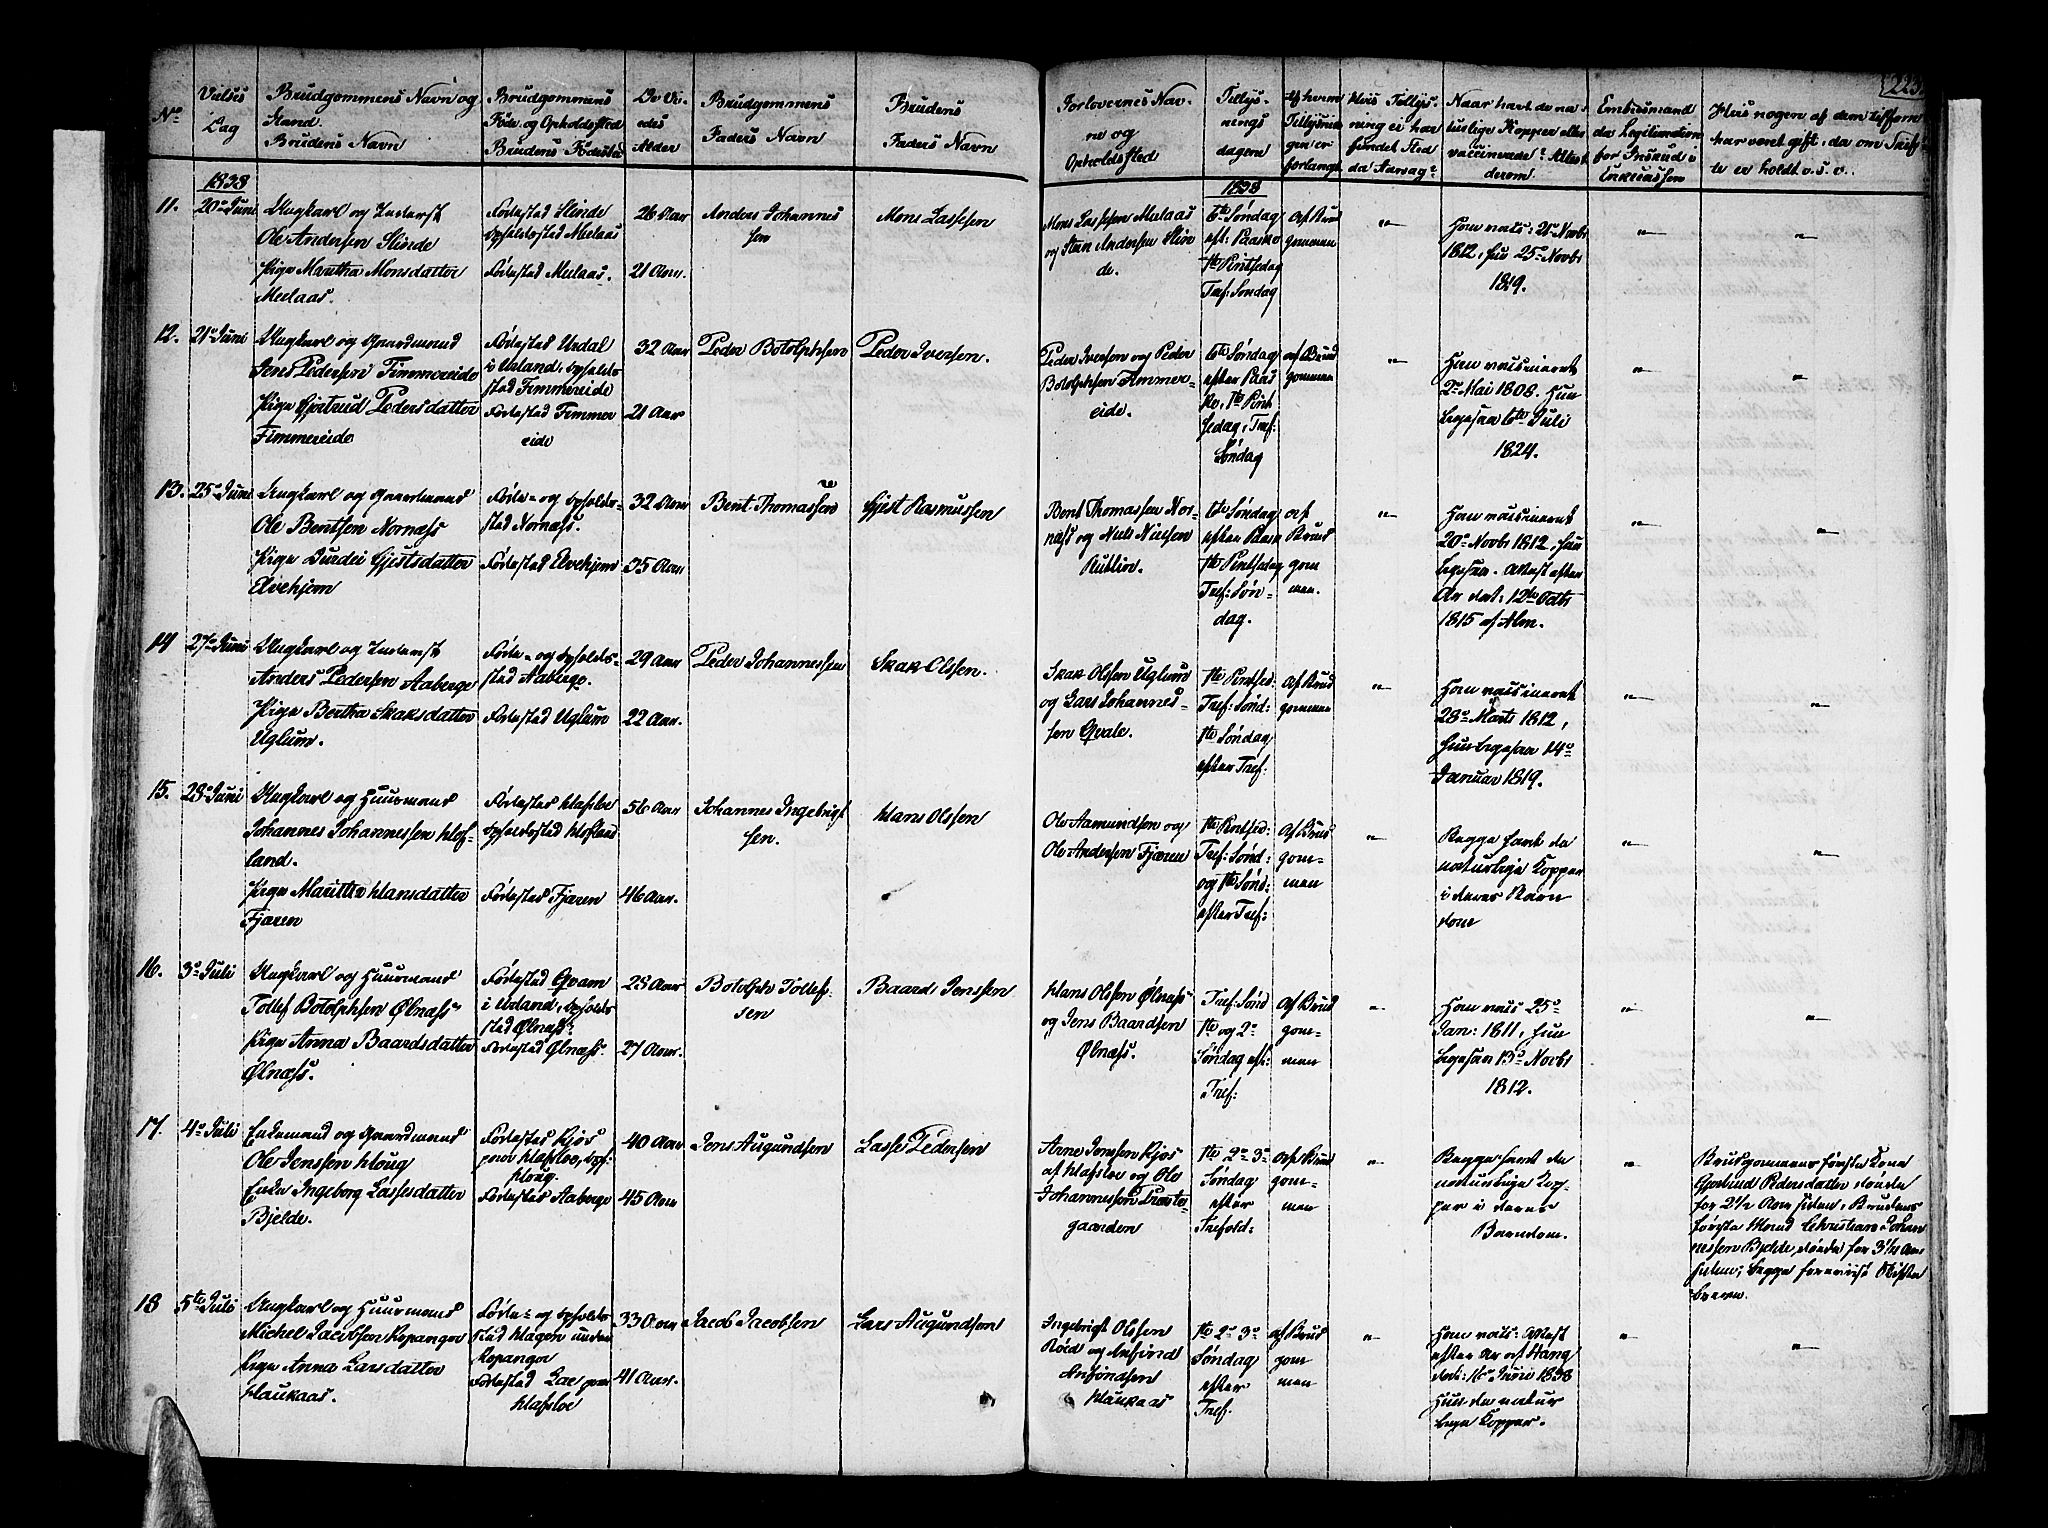 223.
No
Vielses Dag
Brudgommens Navn og
Stand.
Brudens Navn
Brudgommens
Føde- og Opholdssted
Brudens Fødested
De Vi-
edes
Alder
Brudgommens
Faders Navn
Brudens
Faders Navn
Forlovernes Nav-
ne og
Opholdssted
Tillys-
nings
dagene
Af hvem
Tillysnin
gen er
forlangt
Hvis Tillys-
ning ei har
fundet Sted
da Aarsag
Naar havt de na-
turlige Kopper eller
vaccinerede? Attest
derom.
1838
1838
11. 20de Juni
Ungkarl og Inderst
Ole Andersen Slinde
Pige Martha Monsdatter
Melaas.
Fødested Slinde
Opholdssted Melaas
Fødested Melaas.
26 Aar
21 Aar
Anders Johannes
sen
Mons Lassesen
Mons Lassesen Melaas
og Sten Andersen Slin
de.
6te Søndag
eft: Paaske
1te Pintsedag
Tref: Søndag
af Brud
gommen
"
Han vacc: 21de Novbr
1812, hun 25de Novbr
1819.
"
"
12. 21de Juni
Ungkarl og Gaardmand
Jens Pedersen Fimmereide
Pige Gjertrud Pedersdatter
Fimmereide
Fødested Urdal
i Urland, Opholds-
sted Fimmereide
Fødested Fimmer
eide
32 Aar
21 Aar
Peder Botolphsen
Peder Iversen.
Peder Iversen og Peder
Botolphsen Fimmer-
eide.
6te Søndag
efter Paas
ke, 1te Pint
sedag, Tref:
Søndag
af Brud
gommen
"
Han vaccineret
2de Mai 1808. Hun
ligesaa 6te Juli
1824.
"
"
13. 25de Juni
Ungkarl og Gaardmand
Ole Bentsen Nornæss
Pige Gjestsdatter
Elvehjem
Føde- og Opholds-
sted Nornæss.
Fødested Elvehjem
32 Aar
35 Aar
Bent Thomassen
Gjest Rasmussen
Bent Thomassen Nor-
næss og Niels Nielsen
Rutlin.
6te Søndag
efter Paaske
1te Pintsedag
Tref: Søn-
dag.
af
Brud
gom
men.
"
Han vaccineret
20de Novbr 1812, hun
ligesaa. Attest efter
dat: 12te Octbr
1815 af Alm.
"
"
14 27de Juni
Ungkarl og Inderst
Anders Pedersen Aaberge
Pige Bertha Skaksdatter
Uglum.
Føde- og Opholds-
sted Aaberge.
Fødested Uglum
29 Aar
22 Aar.
Peder Johannessen
Skak Olssen.
Skak Olssen Uglum
og Lars Johannes-
sen Qvale.
1te Pintsed:
Tref: Sønd:
1te Søndag
efter Tref:
af Brud
gommen
"
Han vaccineret
28de Marts 1812,
hun ligesaa 14de
Januar 1819.
"
"
15. 28de Juni
Ungkarl og Huusmand
Johannes Johannessen Hof-
land.
Pige Marittha Hansdatter
Fjæren
Fødested Hafslo
Opholdssted Hofland
Fødested Fjæren
56 Aar
46 Aar.
Johannes Ingebrigt
sen.
Hans Olssen
Ole Aamundsen og
Ole Andersen Fjæren
1te Pintsed:
Tref: Sønd:
og 1te Sønd:
efter Tref:
af Brud
gom-
men
"
Begge havt de
naturlige Kopper
i deres Barn
dom
"
"
16. 3de Juli
Ungkarl og Huusmand
Tollef Botolphsen Ølnæss
Pige Anna Baardsdatter
Ølnæss.
Fødested Qvam
i Urland, Opholds-
sted Ølnæss
Fødested Ølnæss.
28 Aar
27 Aar.
Botolph Tollef-
sen
Baard Jenssen
Hans Olssen Ølnæss
og Jens Baardsen
Ølnæss.
Tref: Sønd
1te og 2de
Søndag eft:
Tref:
af Brud
gom-
men
"
Han vacc 25de
Jan: 1811, hun
ligesaa 13de Novbr
1812.
"
"
17. 4de Juli
Enkemand og Gaardmand
Ole Jenssen Houg
Enke Ingeborg Lassesdatter
Bjelde.
Fødested Kjos
paa Hafsloe, Oph.
Houg.
Fødested Aaberge
40 Aar
45 Aar
Jens Augundsen
Lasse Pedersen
Arne Jenssen Kjos
af Hafsloe og Ole
Johannessen Præste-
gaarden
1te 2de 3de
Søndag
efter
Trefold:
af Brud
gom-
men
"
Begge havt de
naturlige Kop-
per i deres
Barndom.
"
Brudgommens første Kone
Gjertrud Pedersdatter døde
for 2 1/2 Aar siden, Brudens
første Mand Christian Johan
nessen Bjelde, døde for 3 1/2 Aar
siden; begge foreviist Skifte
breve.
18 5te Juli
Ungkarl og Huusmand
Michel Jacobsen Kopanger
Pige Anna Larsdatter
Haukaas.
Føde- og Opholds-
sted Hagen under
Kopanger
Fødested Lae paa
Hafsloe
33 Aar
41 Aar.
Jacob Jacobsen
Lars Augundsen
Ingebrigt Olssen
og Anfind
Anfindsen
Haukaas
1te 2de 3de
Søndag
efter
Tref:
af Brud
gom
men
"
Han vacc: Attest
efter af Stang
dat: 16de Juni 1838
Hun de natur
lige Kopper.
"
"